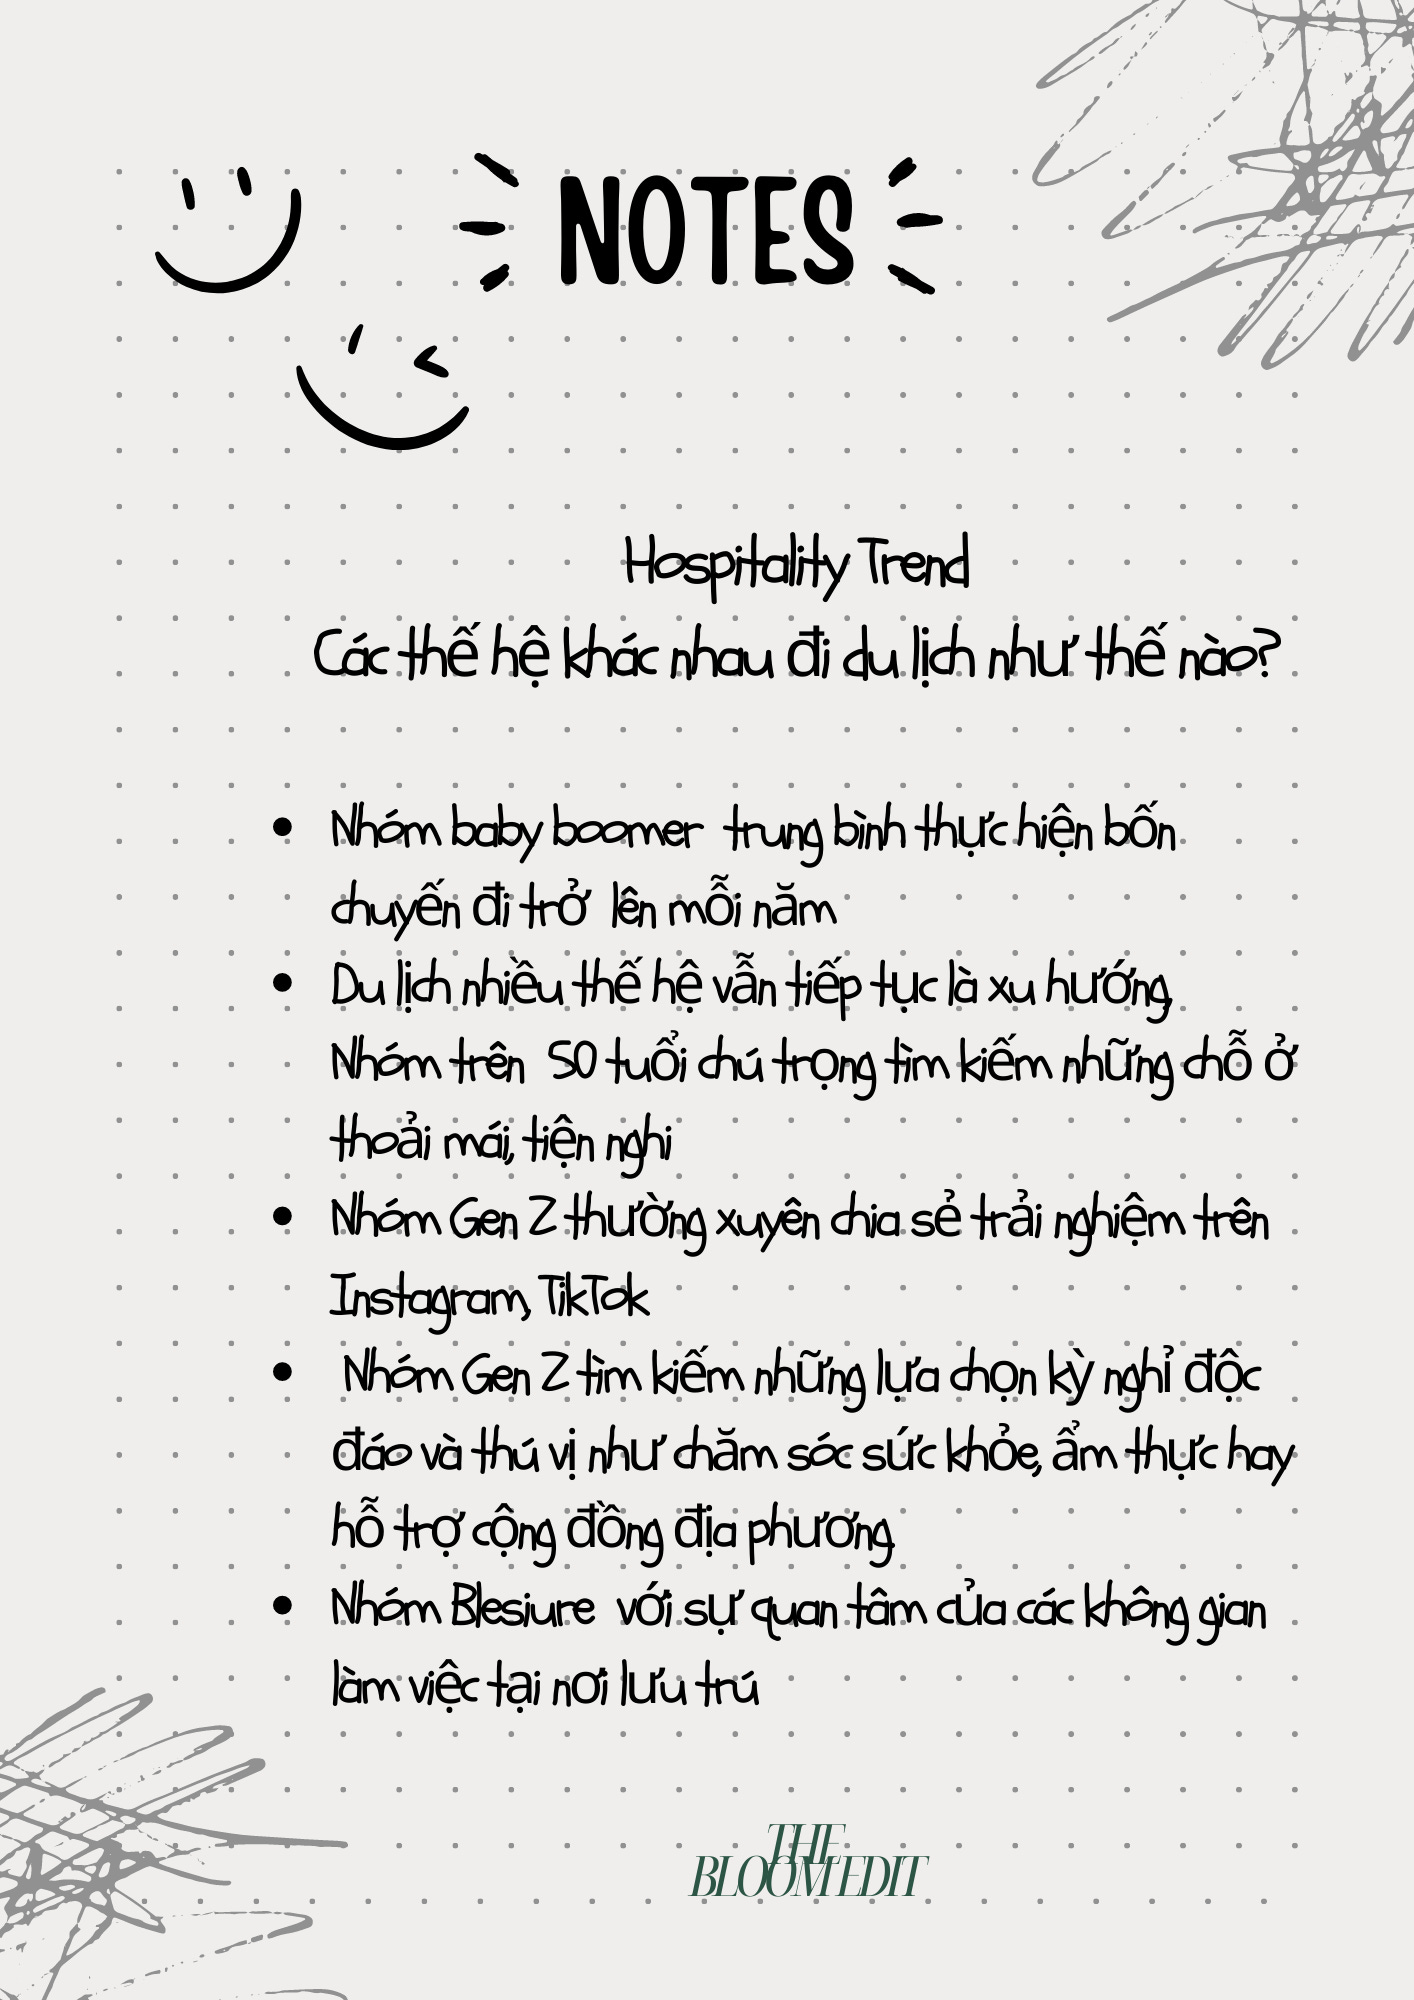 NOTES
Hospitality Trend
Các thế hệ khác nhau đi du lịch như thế nào?
Nhóm baby boomer trung bình thực hiện bốn
chuyến đi trở lên mỗi năm
Du lịch nhiều thế hệ vẫn tiếp tục là xu hướng
Nhóm trên 50 tuổi chú trọng tìm kiếm những chỗ ở
thoải mái, tiện nghi
Nhóm Gen Z thường xuyên chia sẻ trải nghiệm trên
Instagram, TikTok
Nhóm Gen Z tìm kiếm những lựa chọn kỳ nghỉ độc
đáo và thú vị như chăm sóc sức khỏe, ẩm thực hay
hỗ trợ cộng đồng địa phương.
Nhóm Blesiure với sự quan tâm của các không gian
làm việc tại nơi lưu trú
THE
BLOOM EDIT